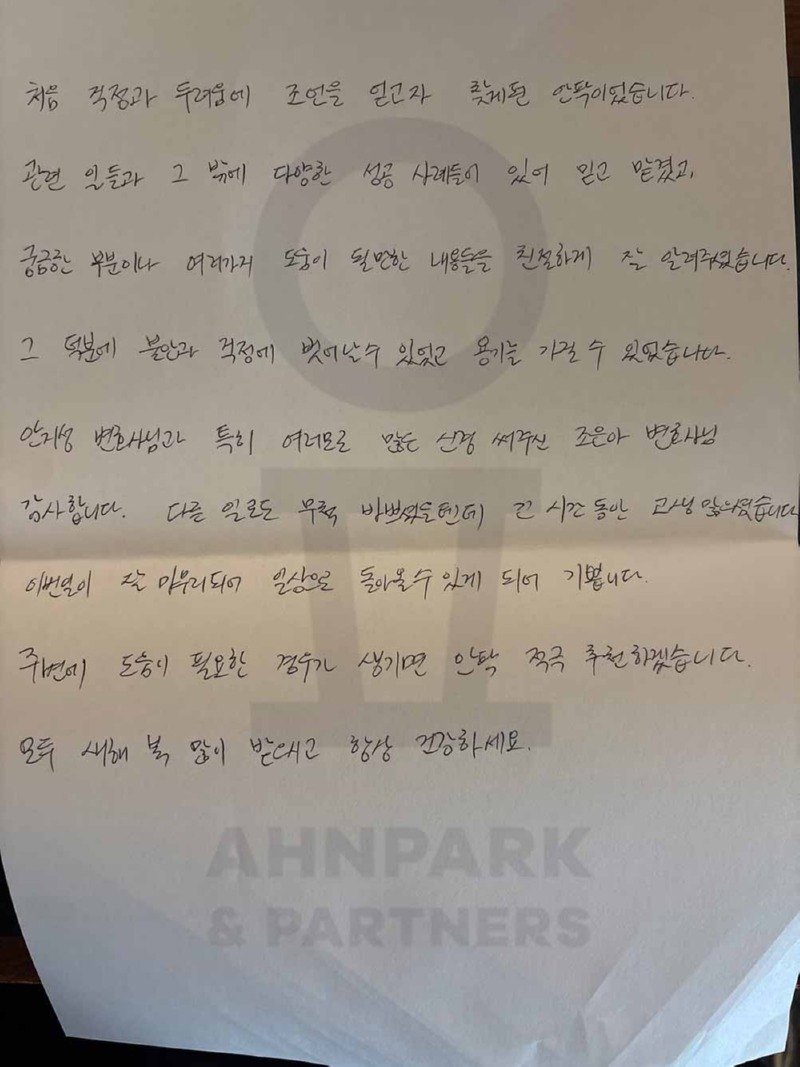 처음 걱정과 두려움에 조언을 얻고자 찾게된 안팍이었습니다.
관련 일들과 그 밖에 다양한 성공 사례들이 있어 믿고 맡겼고,
궁금한 부분이나 여러가지 도움이 될만한 내용들을 친절하게 잘 알려주셨습니다.
그 덕분에 불안과 걱정에 벗어날수 있었고 용기를 가질 수 있었습니다.
안지성 변호사님과 특히 여러모로 많은 신경 써주신 조은아 변호사님
감사합니다. 다른 일로도 무척 바쁘셨을텐데 긴 시간 동안 고생 많으셨습니다
이번일이 잘 마무리되어 일상으로 돌아올수 있게 되어 기쁩니다.
주변에 도움이 필요한 경우가 생기면 안팍 적극 추천하겠습니다.
모두 새해 복 많이 받으시고 항상 건강하세요.
AHNPARK
& PARTNERS